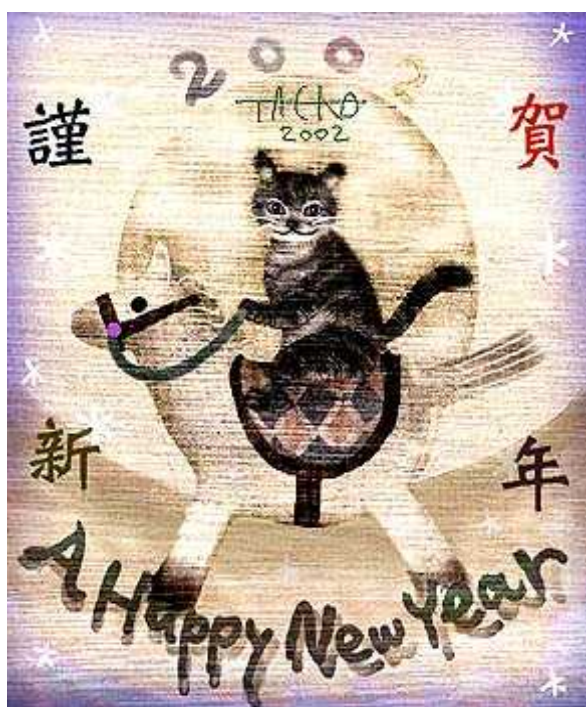 2002
TACHO
2002
謹 賀
新 年
A Happy New Year